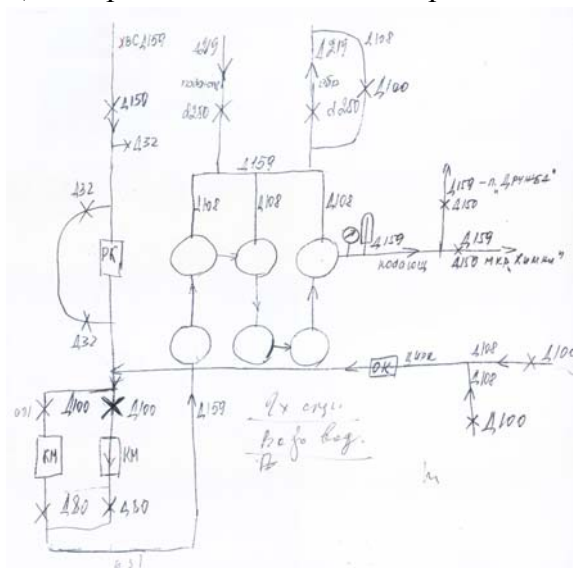 ХВС Д159
Д219
Д219
Д108
подающ
обр
Д150
d250
d250
Д100
Д32
Д159
Д32
Д108
Д108
Д108
Д159 - п. "ДРУЖБА"
Д150
РК
Д159
Д159
подающ
Д150 мкр. "Химик"
Д32
ОК
цирк
Д108
Д100
Д108
Д100
Д100
Д159
Д100
КМ
КМ
Д80
Д80